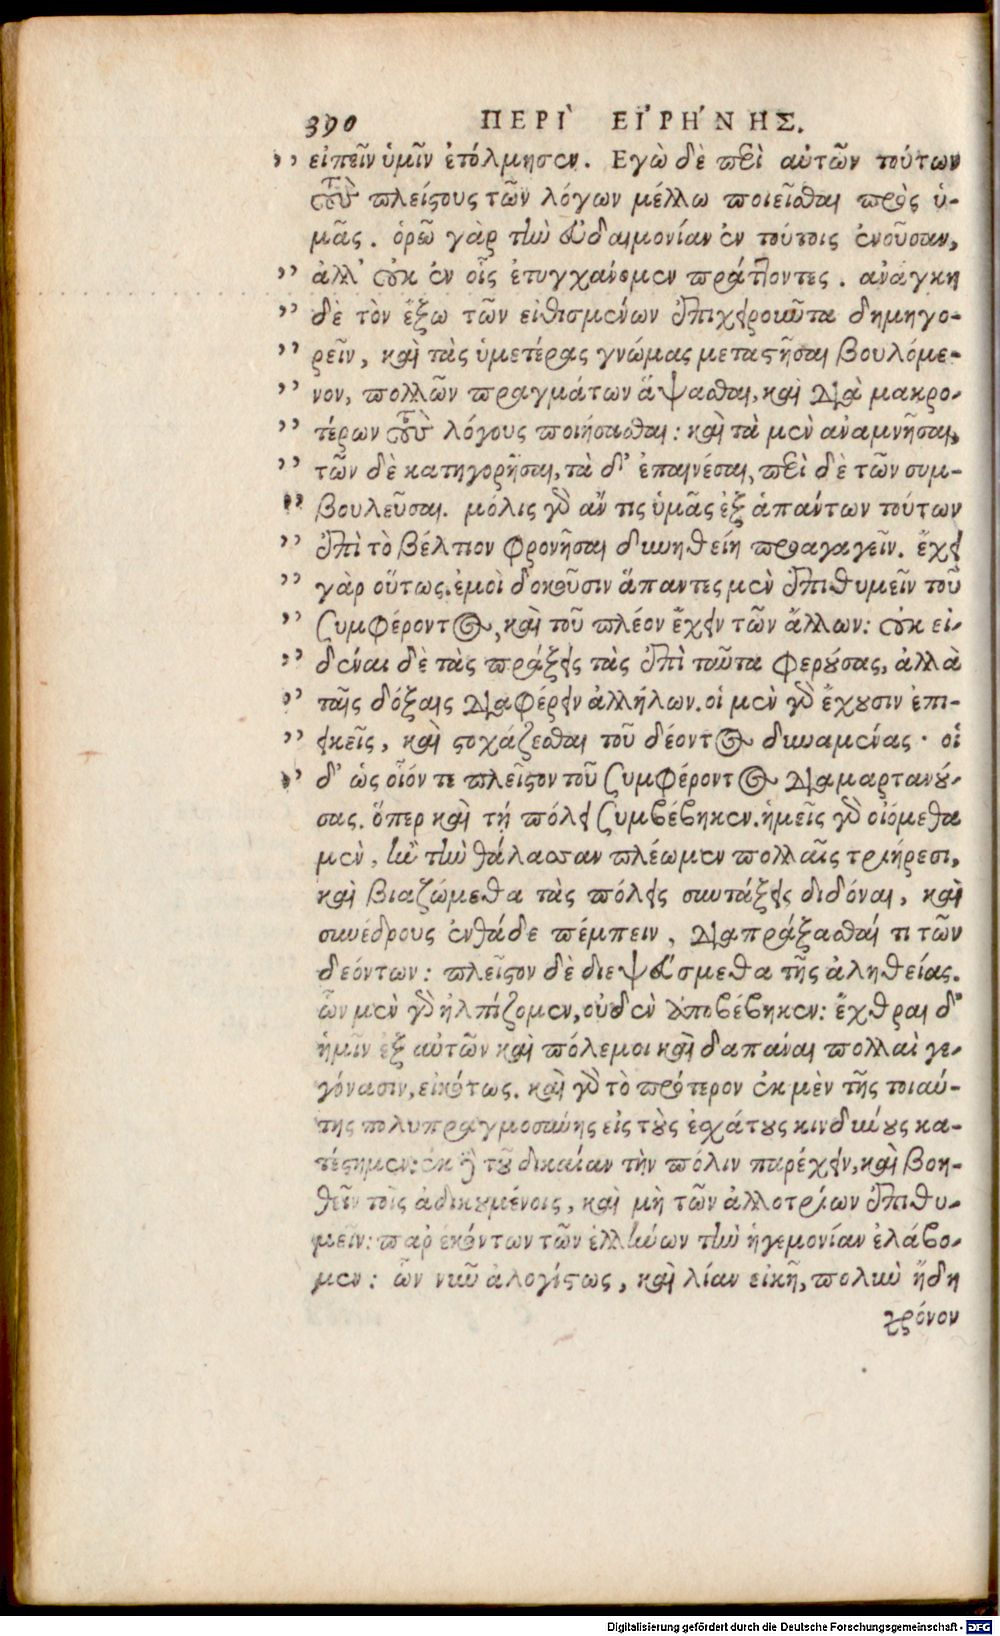 390 ΠΕΡΙ` ΕΙ'ΡΗ'ΝΗΣ.
,, εἰπεῖν ὑμῖν ἐτόλμησεν. Εγὼ δὲ περὶ αὐτῶν τούτων
τοὺς πλείστους τῶν λόγων μέλλω ποιεῖσθαι πρὸς ὑ-
μᾶς. ὁρῶ γὰρ τὴν εὐδαιμονίαν ἐν τούτοις ἐνοῦσαν,
,, ἀλλ' οὐκ ἐν οἷς ἐτυγχάνομεν πράττοντες. ἀνάγκη
,, δὲ τὸν ἔξω τῶν εἰθισμένων ἐπιχειροῦντα δημηγο-
,, ρεῖν, καὶ τὰς ὑμετέρας γνώμας μεταστῆσαι βουλόμε-
,, νον, πολλῶν πραγμάτων ἅψασθαι, καὶ διὰ μακρο-
,, τέρων τοὺς λόγους ποιήσασθαι: καὶ τὰ μὲν ἀναμνῆσαι,
,, τῶν δὲ κατηγορῆσαι, τὰ δ' ἐπαινέσαι, περὶ δὲ τῶν συμ-
,, βουλεῦσαι. μόλις γὰρ ἄν τις ὑμᾶς ἐξ ἁπάντων τούτων
,, ἐπὶ τὸ βέλτιον φρονῆσαι δυνηθείη προαγαγεῖν. ἔχει
,, γὰρ οὕτως. ἐμοὶ δοκοῦσιν ἅπαντες μὲν ἐπιθυμεῖν τοῦ
,, συμφέροντος, καὶ τοῦ πλέον ἔχειν τῶν ἄλλων: οὐκ εἰ-
,, δέναι δὲ τὰς πράξεις τὰς ἐπὶ ταῦτα φερούσας, ἀλλὰ
,, ταῖς δόξαις διαφέρειν ἀλλήλων. οἱ μὲν γὰρ ἔχουσιν ἐπι-
,, εικεῖς, καὶ στοχάζεσθαι τοῦ δέοντος δυναμένας· οἱ
,, δ' ὡς οἷόν τε πλεῖστον τοῦ συμφέροντος διαμαρτανού-
σας. ὅπερ καὶ τῇ πόλει συμβέβηκεν. ἡμεῖς γὰρ οἰόμεθα
μὲν, ἢν τὴν θάλασσαν πλέωμεν πολλαῖς τριήρεσι,
καὶ βιαζώμεθα τὰς πόλεις συντάξεις διδόναι, καὶ
συνέδρους ἐνθάδε πέμπειν, διαπράξασθαί τι τῶν
δεόντων: πλεῖστον δὲ διεψεύσμεθα τῆς ἀληθείας.
ὧν μὲν γὰρ ἠλπίζομεν, οὐδὲν ἀποβέβηκεν: ἔχθραι δ'
ἡμῖν ἐξ αὐτῶν καὶ πόλεμοι καὶ δαπάναι πολλαὶ γε-
γόνασιν, εἰκότως. καὶ γὰρ τὸ πρότερον ἐκ μὲν τῆς τοιαύ-
της πολυπραγμοσύνης εἰς τοὺς ἐσχάτους κινδύνους κα-
τέστημεν: ἐκ δὲ τοῦ δικαίαν τὴν πόλιν παρέχειν, καὶ βοη-
θεῖν τοῖς ἀδικουμένοις, καὶ μὴ τῶν ἀλλοτρίων ἐπιθυ-
μεῖν: παρ' ἑκόντων τῶν ἑλλήνων τὴν ἡγεμονίαν ἐλάβο-
μεν: ὧν νῦν ἀλογίστως, καὶ λίαν εἰκῆ, πολὺν ἤδη
χρόνον
Digitalisierung gefördert durch die Deutsche Forschungsgemeinschaft - DFG